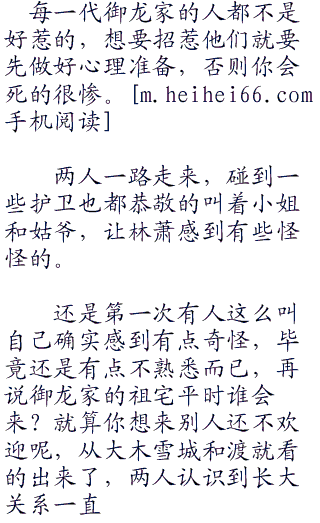 每一代御龙家的人都不是
好惹的，想要招惹他们就要
先做好心理准备，否则你会
死的很惨。[m.heihei66.com
手机阅读]
两人一路走来，碰到一
些护卫也都恭敬的叫着小姐
和姑爷，让林萧感到有些怪
怪的。
还是第一次有人这么叫
自己确实感到有点奇怪，毕
竟还是有点不熟悉而已，再
说御龙家的祖宅平时谁会
来？就算你想来别人还不欢
迎呢，从大木雪城和渡就看
的出来了，两人认识到长大
关系一直